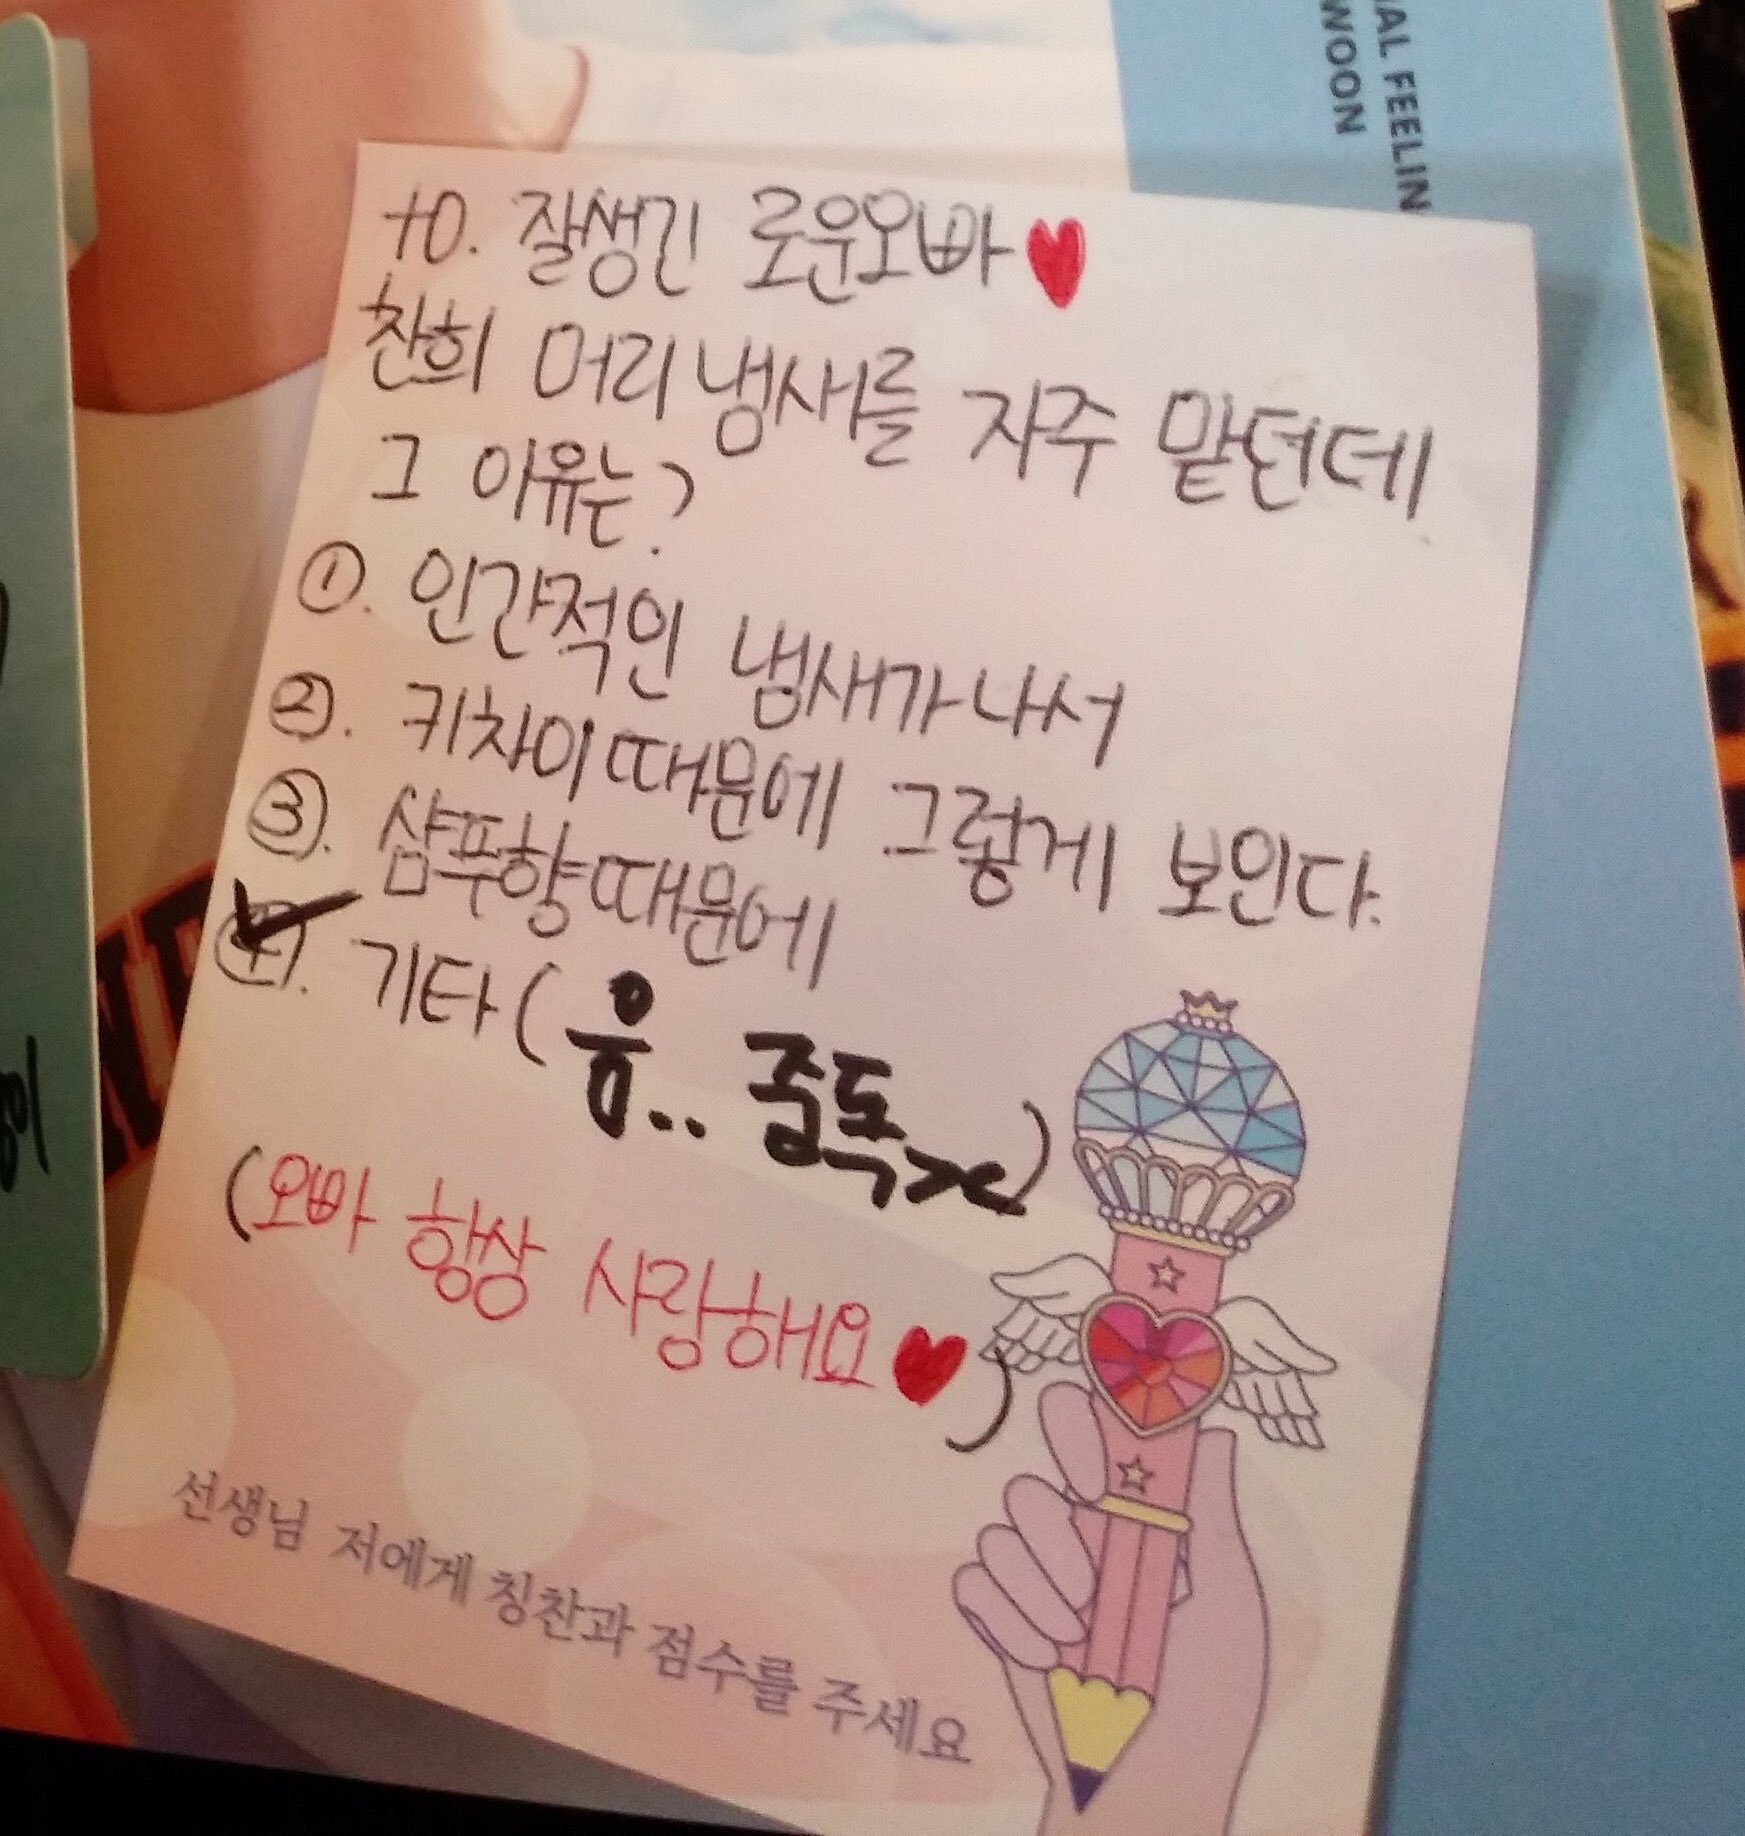 to. 잘생긴 로운오빠♥
찬희 머리 냄새를 자주 맡던데.
그 이유는?
①. 인간적인 냄새가나서
②. 키차이때문에 그렇게 보인다.
③. 샴푸향때문에
④. 기타 (음.. 중독><)
(오빠 항상 사랑해요♥)
선생님 저에게 칭찬과 점수를 주세요
IAL FEELIN
WOON